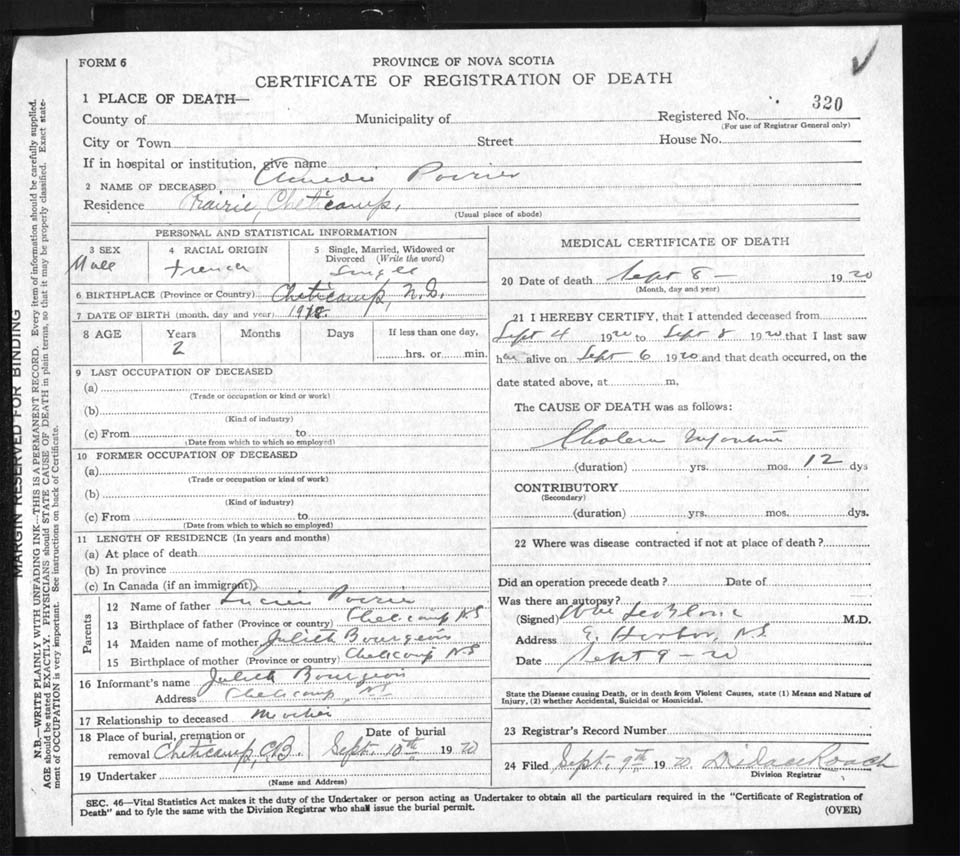 FORM 6
PROVINCE OF NOVA SCOTIA
CERTIFICATE OF REGISTRATION OF DEATH
320
1 PLACE OF DEATH—
County of Municipality of Registered No.
(For use of Registrar General only)
City or Town Street House No.
If in hospital or institution, give name
2 NAME OF DECEASED Poirier
Residence Prairie, Cheticamp.
(Usual place of abode)
PERSONAL AND STATISTICAL INFORMATION
3 SEX 4 RACIAL ORIGIN 5 Single, Married, Widowed or Divorced (Write the word)
Male French Single
6 BIRTHPLACE (Province or Country) Cheticamp, N.S.
7 DATE OF BIRTH (month, day and year) 1918.
8 AGE Years Months Days If less than one day,
2 hrs. or min.
9 LAST OCCUPATION OF DECEASED
(a)
(Trade or occupation or kind or work)
(b)
(Kind of industry)
(c) From to
(Date from which to which so employed)
10 FORMER OCCUPATION OF DECEASED
(a)
(Trade or occupation or kind of work)
(b)
(Kind of industry)
(c) From to
(Date from which to which so employed)
11 LENGTH OF RESIDENCE (In years and months)
(a) At place of death
(b) In province
(c) In Canada (if an immigrant)
Parents
12 Name of father Lucien Poirier
13 Birthplace of father (Province or country) Cheticamp NS
14 Maiden name of mother Julieth Bourgeois
15 Birthplace of mother (Province or country) Cheticamp NS
16 Informant's name Julieth Bourgeois
Address Cheticamp NS
17 Relationship to deceased Mother
18 Place of burial, cremation or Date of burial
removal Cheticamp, C.B. Sept. 10th 1920
19 Undertaker
(Name and Address)
MEDICAL CERTIFICATE OF DEATH
20 Date of death Sept 8 — 1920
(Month, day and year)
21 I HEREBY CERTIFY, that I attended deceased from
Sept 4 1920 to Sept 8 1920 that I last saw
him alive on Sept 6 1920 and that death occurred, on the
date stated above, at m.
The CAUSE OF DEATH was as follows:
Cholera Infantum
(duration) yrs. mos. 12 dys
CONTRIBUTORY
(Secondary)
(duration) yrs. mos. dys.
22 Where was disease contracted if not at place of death?
Did an operation precede death? Date of
Was there an autopsy?
(Signed) Wm LeBlanc M.D.
Address E. Harbor, N.S.
Date Sept 9 - 20
State the Disease causing Death, or in death from Violent Causes, state (1) Means and Nature of Injury, (2) whether Accidental, Suicidal or Homicidal.
23 Registrar's Record Number
24 Filed Sept. 9th 1920. Roach
Division Registrar
SEC. 46—Vital Statistics Act makes it the duty of the Undertaker or person acting as Undertaker to obtain all the particulars required in the "Certificate of Registration of
Death" and to fyle the same with the Division Registrar who shall issue the burial permit. (OVER)
MARGIN RESERVED FOR BINDING
N.B.—WRITE PLAINLY WITH UNFADING INK—THIS IS A PERMANENT RECORD. Every item of information should be carefully supplied.
AGE should be stated EXACTLY. PHYSICIANS should STATE CAUSE OF DEATH in plain terms, so that it may be properly classified. Exact state-
ment of OCCUPATION is very important. See instructions on back of Certificate.